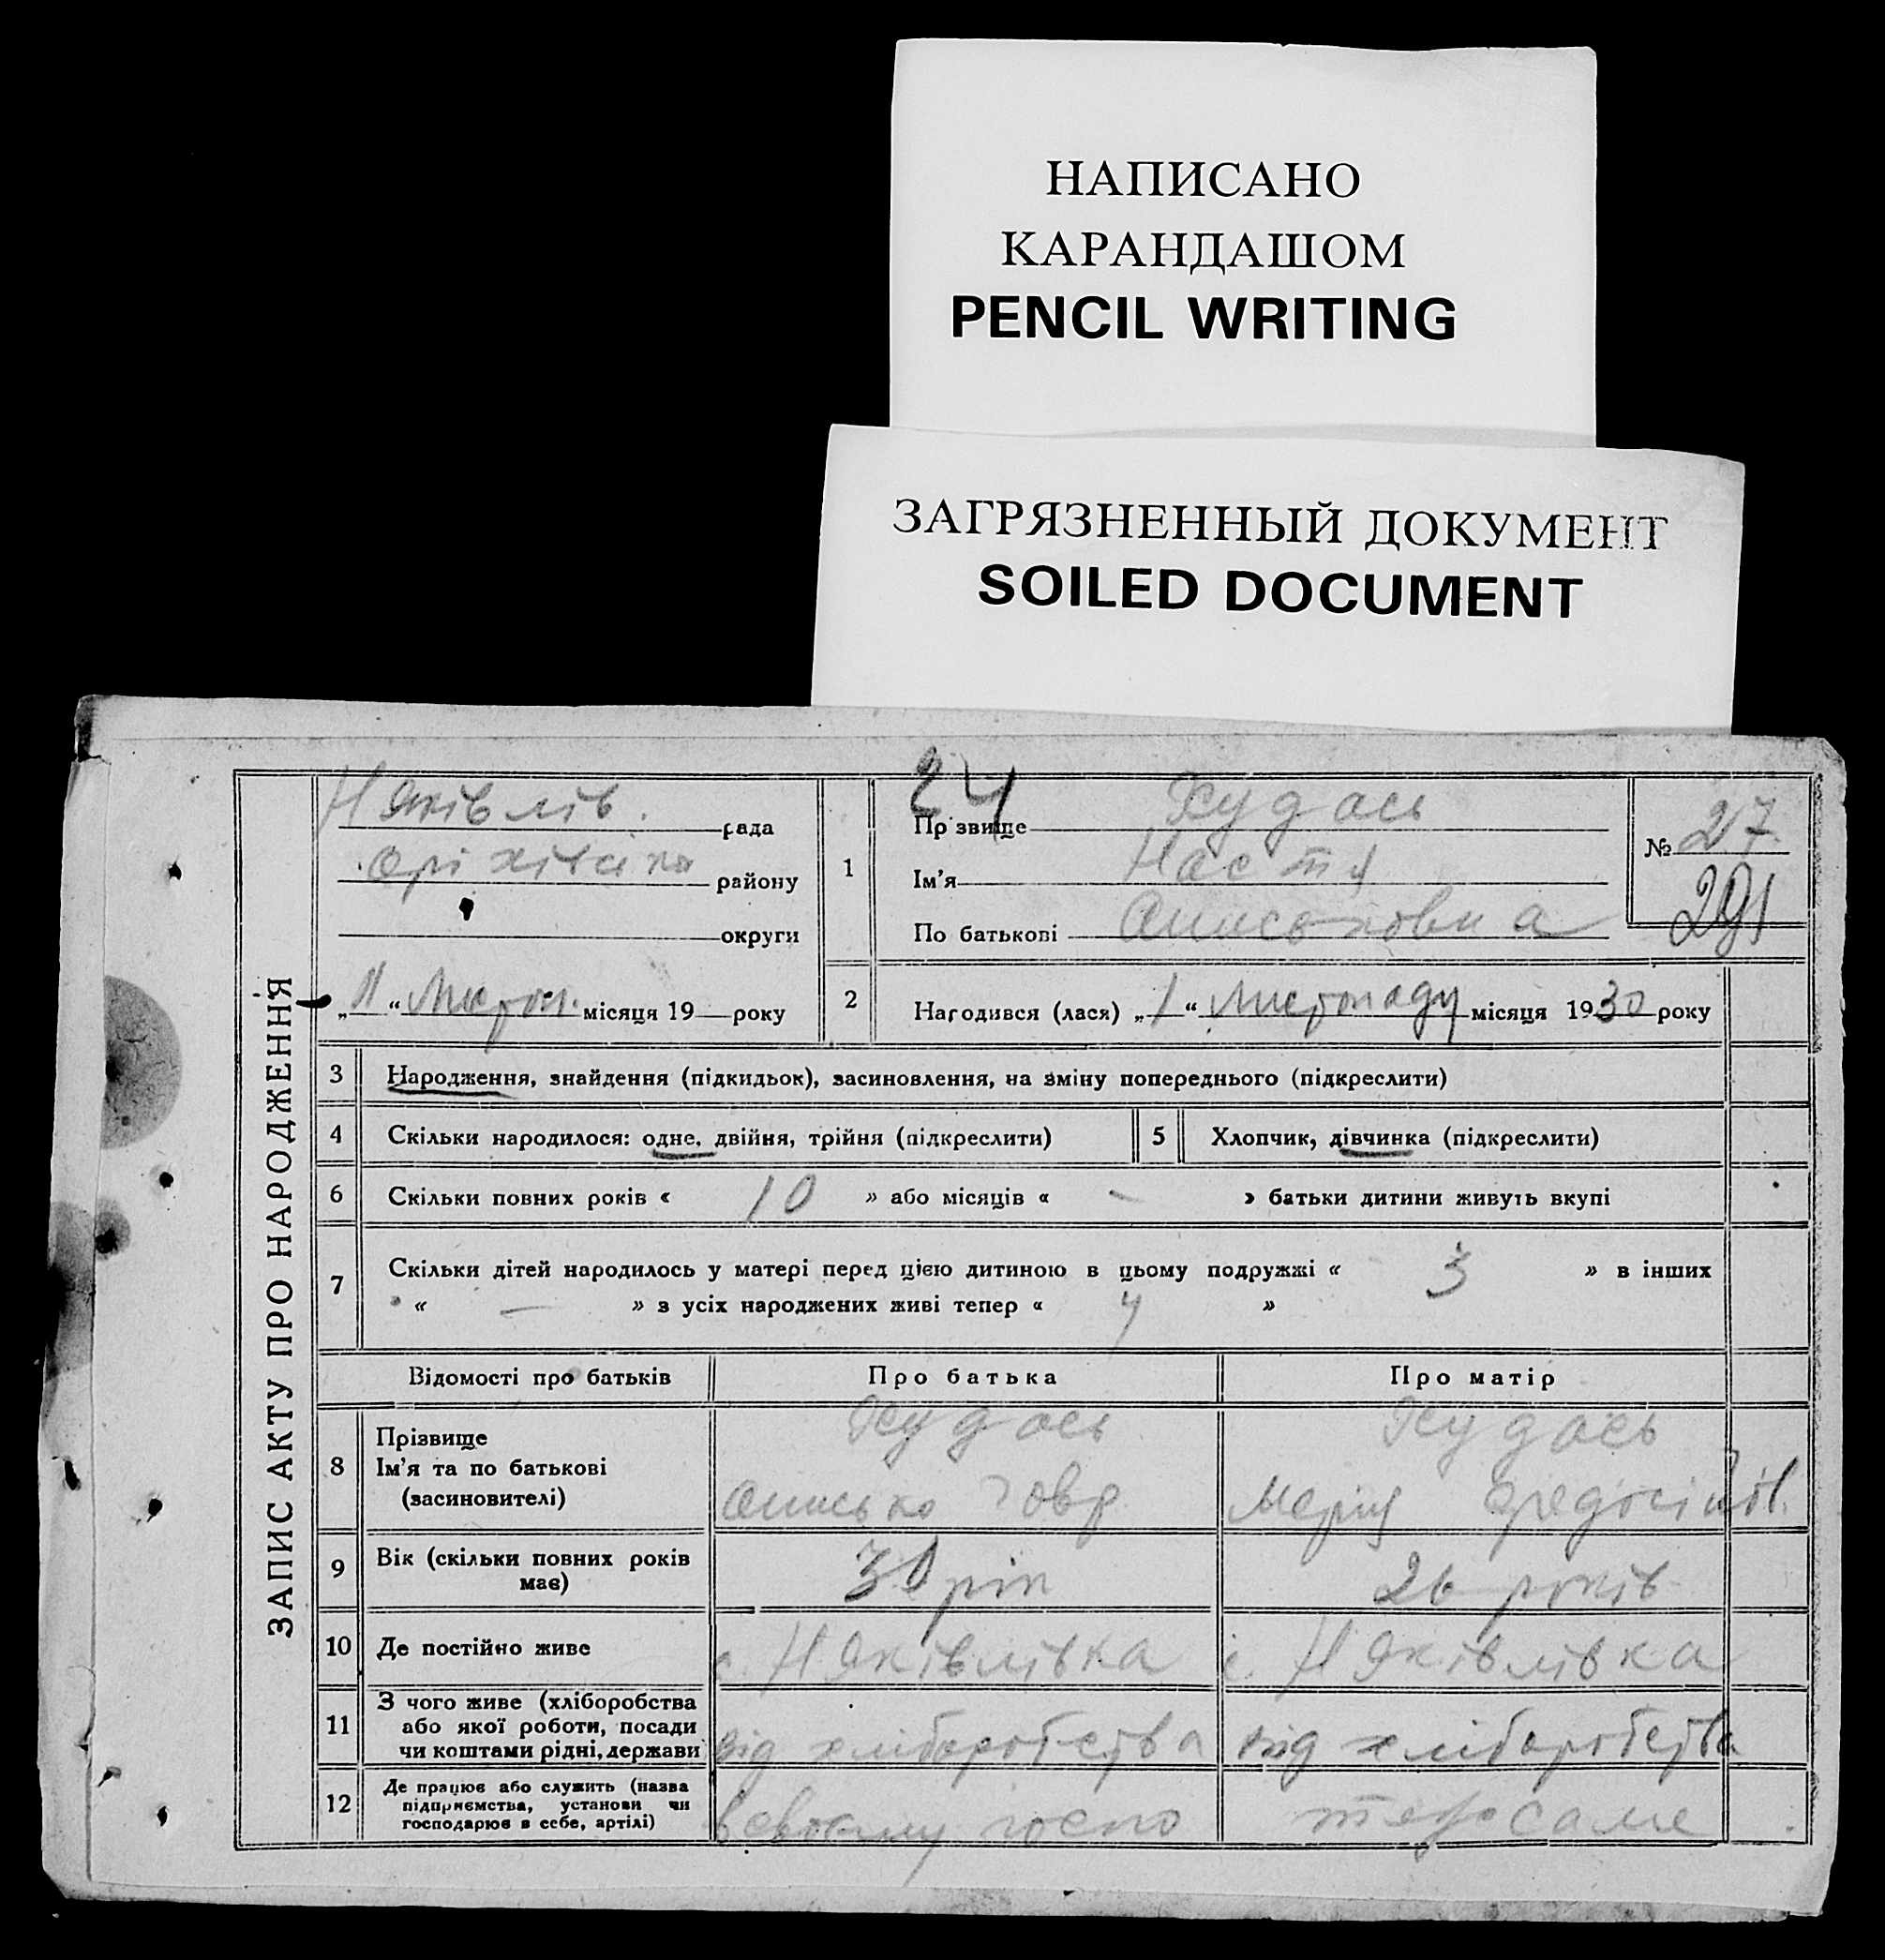 НАПИСАНО
КАРАНДАШОМ
PENCIL WRITING
ЗАГРЯЗНЕННЫЙ ДОКУМЕНТ
SOILED DOCUMENT
ЗАПИС АКТУ ПРО НАРОДЖЕННЯ
Н Яківлів. рада
району
округи
„11“ Листоп. місяця 19 року
24
1 Прізвище Худась
Ім'я Настя
По батькові
№ 27
291
2 Народився (лася) „1“ Листопаду місяця 1930 року
3 Народження, знайдення (підкидьок), засиновлення, на зміну попереднього (підкреслити)
4 Скільки народилося: одне, двійня, трійня (підкреслити) 5 Хлопчик, дівчинка (підкреслити)
6 Скільки повних років « 10 » або місяців « - » батьки дитини живуть вкупі
7 Скільки дітей народилось у матері перед цією дитиною в цьому подружжі « 3 » в інших
« — » з усіх народжених живі тепер « 4 »
Відомості про батьків Про батька Про матір
8 Прізвище Худась Худась
Ім'я та по батькові
(засиновителі)
Онисько Говр Мерія
9 Вік (скільки повних років має) 31 рік 26 років
10 Де постійно живе с. Н Яківлівка с. Н Яківлівка
11 З чого живе (хліборобства
або якої роботи, посади
чи коштами рідні, держави від хліборобства від хліборобства
12 Де працює або служить (назва
підприємства, установи чи
господарює в себе, артілі) в своєму госпо саме